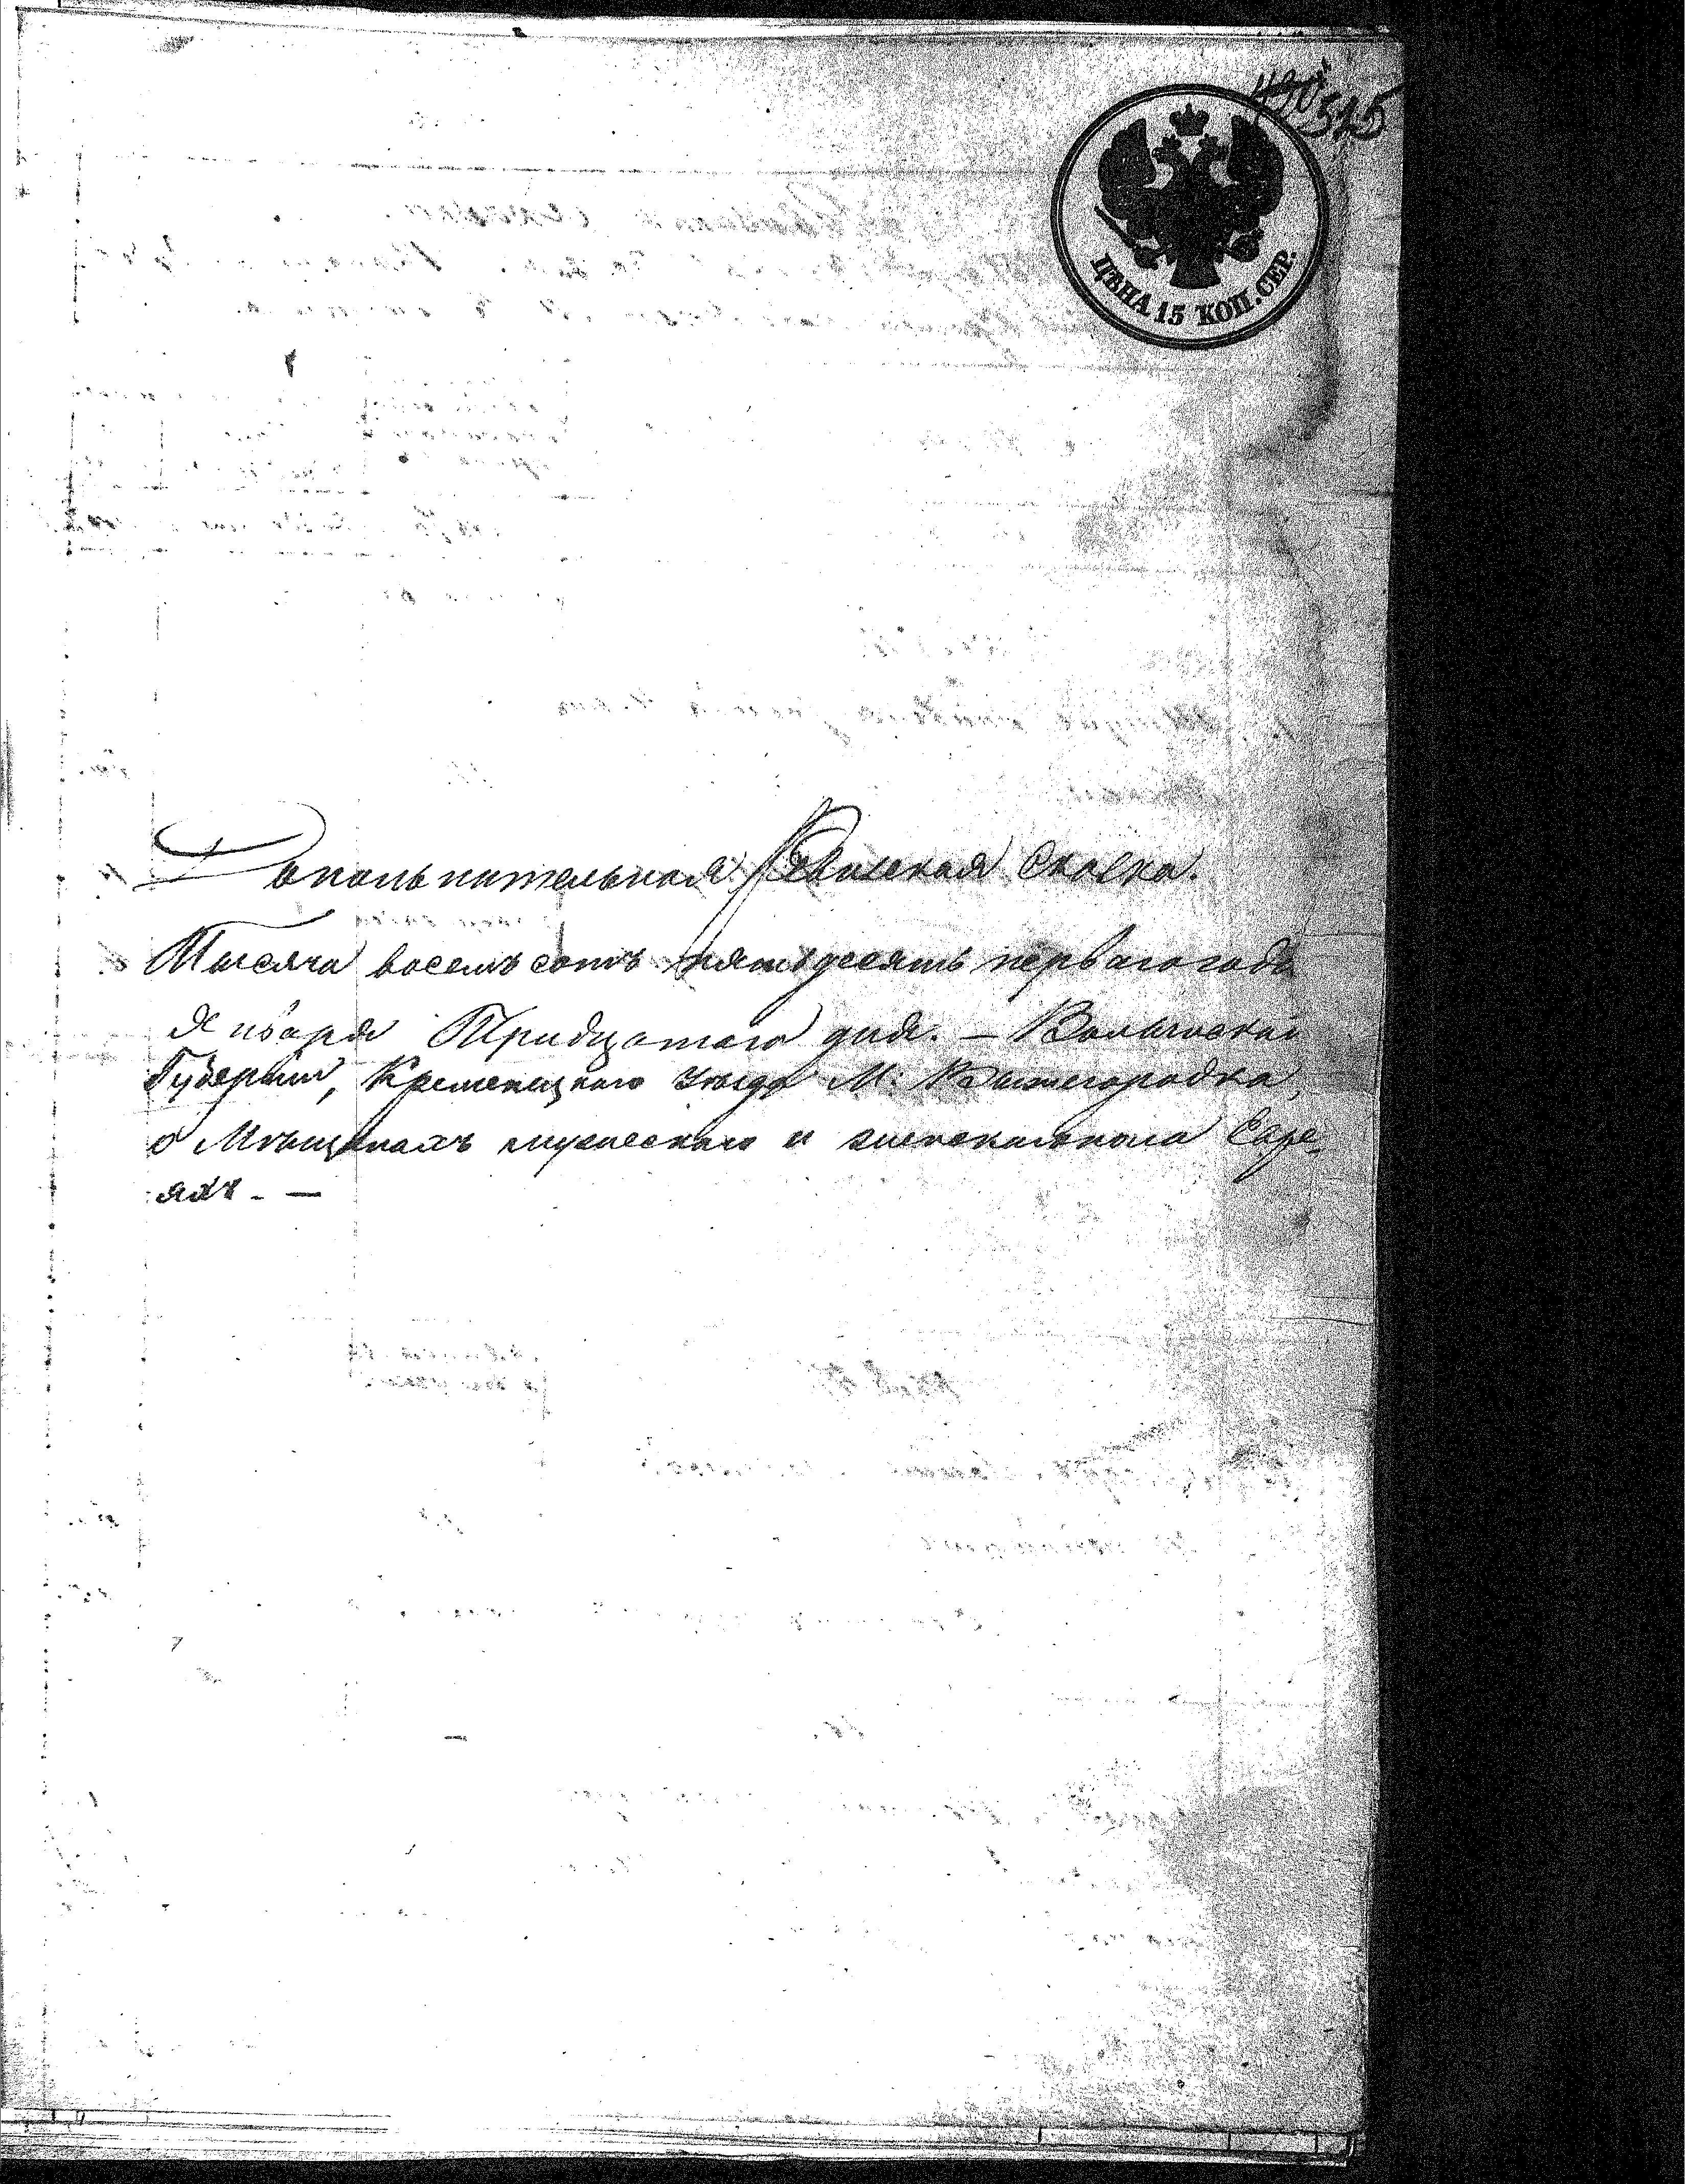 430 525
ЦѢНА 15 КОП. СЕР.
Дополнительная Ревизская Сказка.
Тысяча восемь сотъ пятьдесятъ перваго года
Января Тридцатаго дня. – Волынской
Губерніи, Кременецкаго уезда М. Вышегородка,
о Мѣщанахъ мужескаго и женскаго пола Евре-
яхъ. —